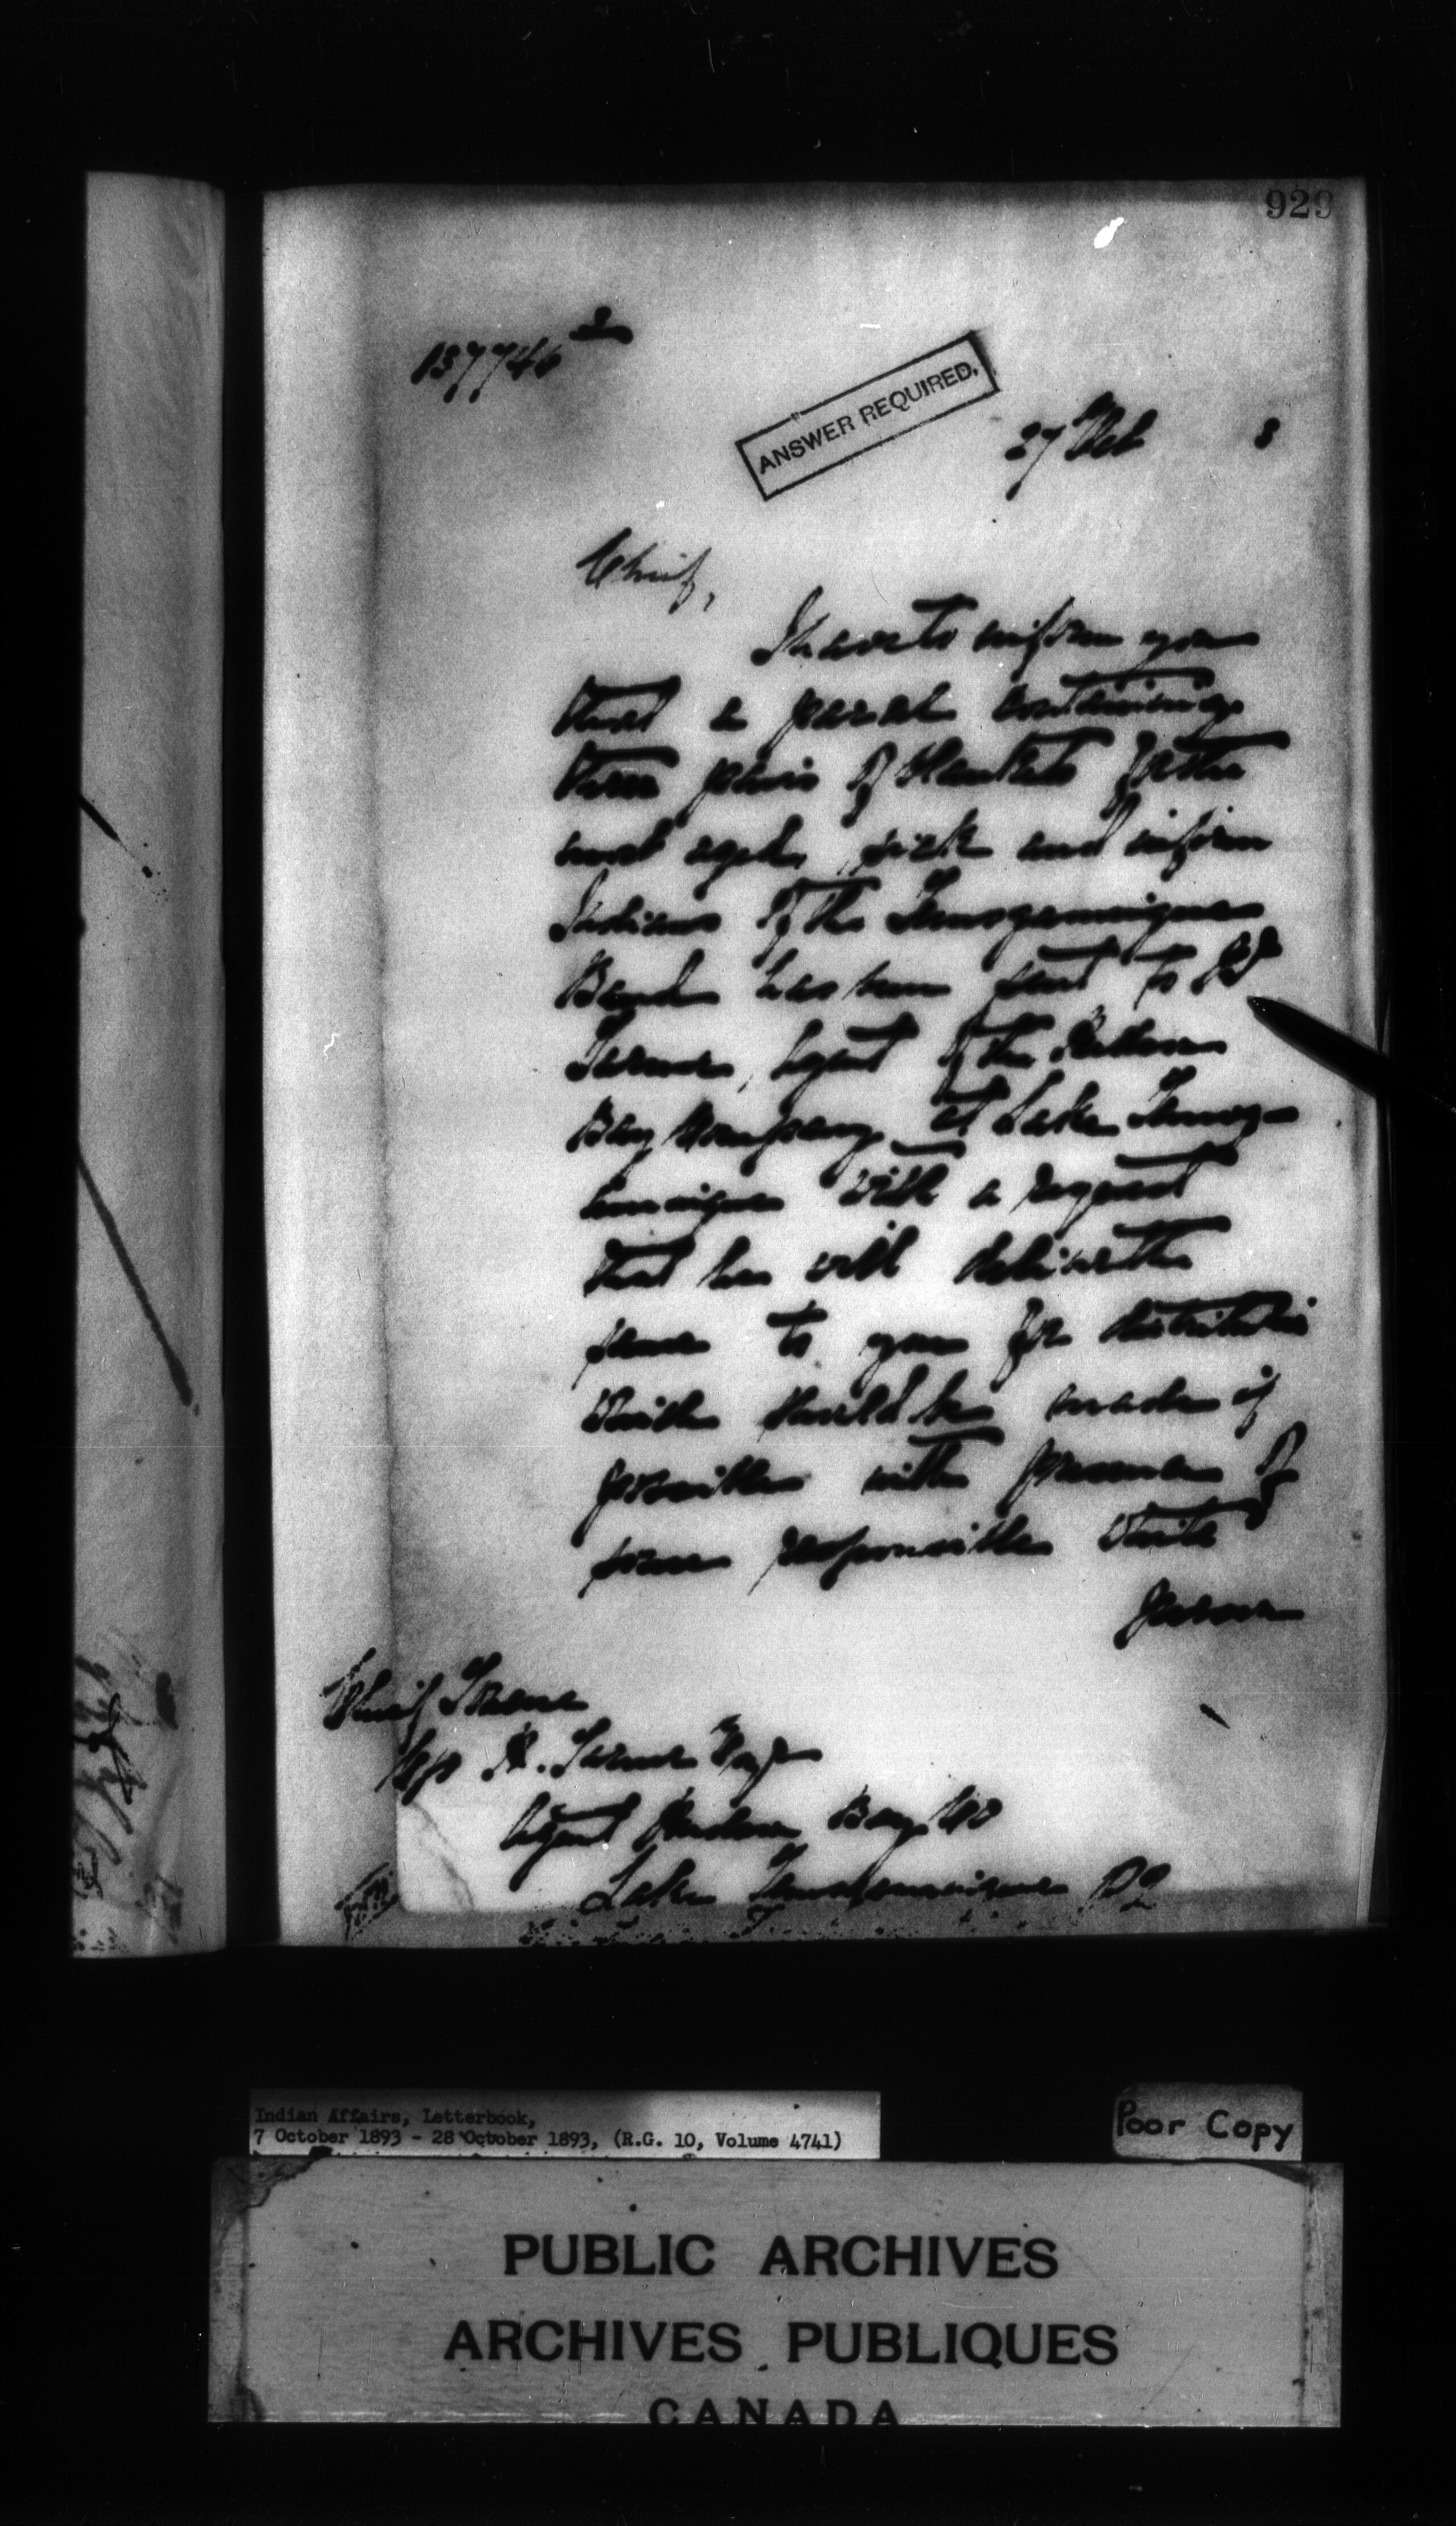 929
137746 2
ANSWER REQUIRED.
27 Oct 3
Chief,
I have to inform you
that a parcel containing
three pairs of Blankets for the
most aged, sick and infirm
Indians of the Temogamingue
Band has been sent to
Turner, Agent of the Hudson
Bay Company at Lake Temog-
amingue with a request
that he will deliver the
same to you for distribution
which should be made if
possible in the presence of
some responsible white
person
Chief Tonene
c/o Turner Esqr
Agent Hudson Bay Co
Lake Temogamingue PQ
Indian Affairs, Letterbook,
7 October 1893 - 28 October 1893, (R.G. 10, Volume 4741)
Poor Copy
PUBLIC ARCHIVES
ARCHIVES PUBLIQUES
CANADA